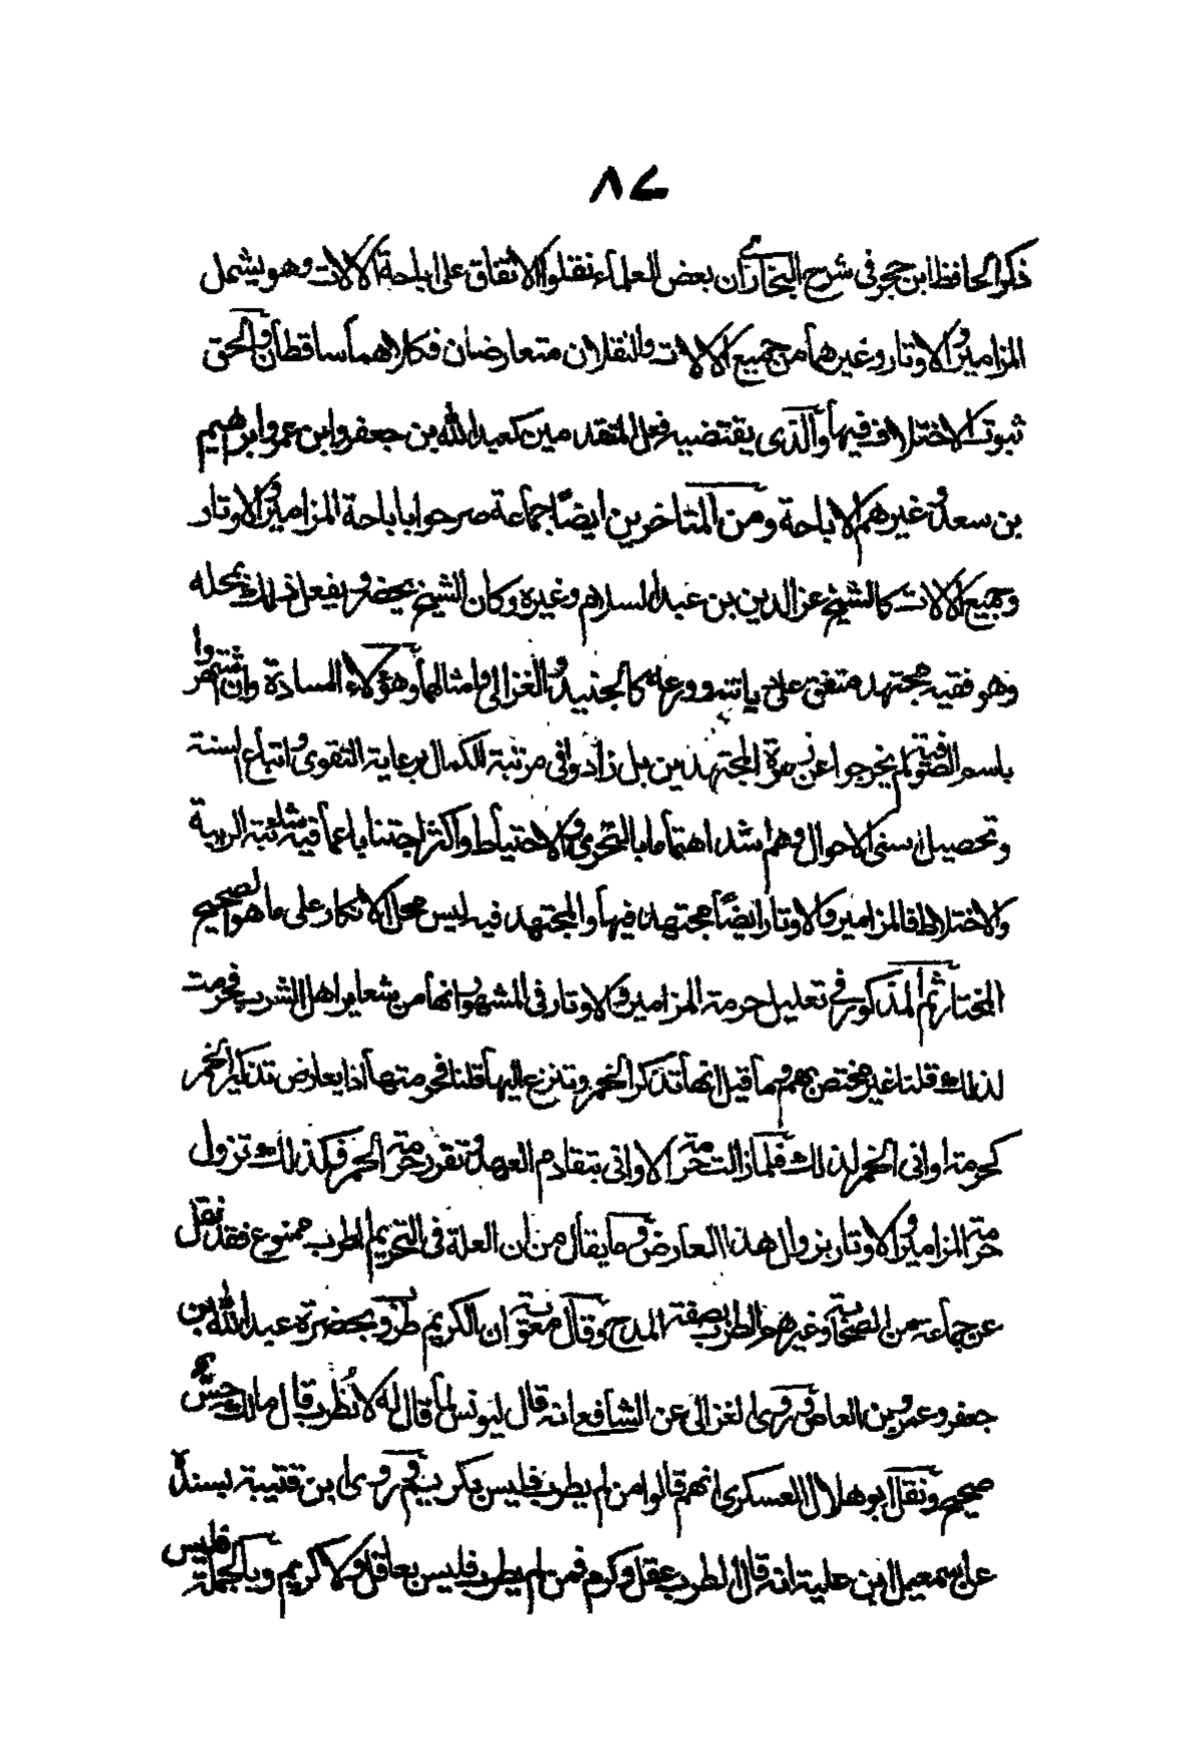 ٨٤
ذكر الحافظ ابن حجر فى شرح البخارى ان بعض العلماء نقلوا الاتفاق على اباحة الالات وهو يشمل
المزامير والاوتار وغيرهما من جميع الالات والنقلان متعارضان فكلاهما ساقطان والحق
ثبوت الاختلاف فيها والذى يقتضيه فعل المتقدمين كعبد الله بن جعفر وابن عمر وابرهيم
بن سعد وغيرهم الاباحة ومن المتاخرين ايضًا جماعة صرحوا باباحة المزامير والاوتار
وجميع الالات كالشيخ عز الدين بن عبد السلام وغيره وكان الشيخ يحضر ويفعل ذلك بمحله
وهو فقيه مجتهد متفق على وورعه كالجنيد والغزالى وامثالهما وهؤلاء السادة وان اشتهروا
باسم الصوفية لم يخرجوا عن زمرة المجتهدين بل زادوا فى مرتبة الكمال برعاية التقوى واتباع السنة
وتحصيل اسنى الاحوال وهم اشد اهتماما بالتحرى والاحتياط واكثر اجتنابا عما فيه شائبة الريبة
والاختلاط فالمزامير والاوتار ايضًا مجتهد فيها والمجتهد فيه ليس محل الانكار على ما هو الصحيح
المختار ثم المذكور فى تعليل حرمة المزامير والاوتار فى المشهور انها من شعاير اهل الشرب فحرمت
لذلك قلنا غير مختص بهم وما قيل انها تذكر الخمر وتنزع اليها قلنا فحرمتها اذا يعارض تذكير الخمر
كحرمة اوانى الخمر لذلك فلما زالت حرمة الاوانى بتقادم العهد وتقرر حرمة الخمر فكذلك تزول
حرمة المزامير والاوتار بزوال هذا العارض وما يقال من ان العلة فى التحريم الطرب ممنوع فقد نقل
عن جماعة من الصحابة وغيرهم الطرب بصفة المدح وقال معوية ان الكريم طروب بحضرة عبد الله بن
جعفر وعمرو بن العاص وروى الغزالى عن الشافعى انه قال ليونس لما قال له لا نُطرب قال مالك حسٌ
صحيح ونقل ابو هلال العسكرى انهم قالوا من لم يطرب فليس بكريم وروى ابن قتيبة بسنده
عن اسمعيل ابن علية انه قال الطرب عقل وكرم فمن لم يطرب فليس بعاقل ولا كريم وبالجملة فليس